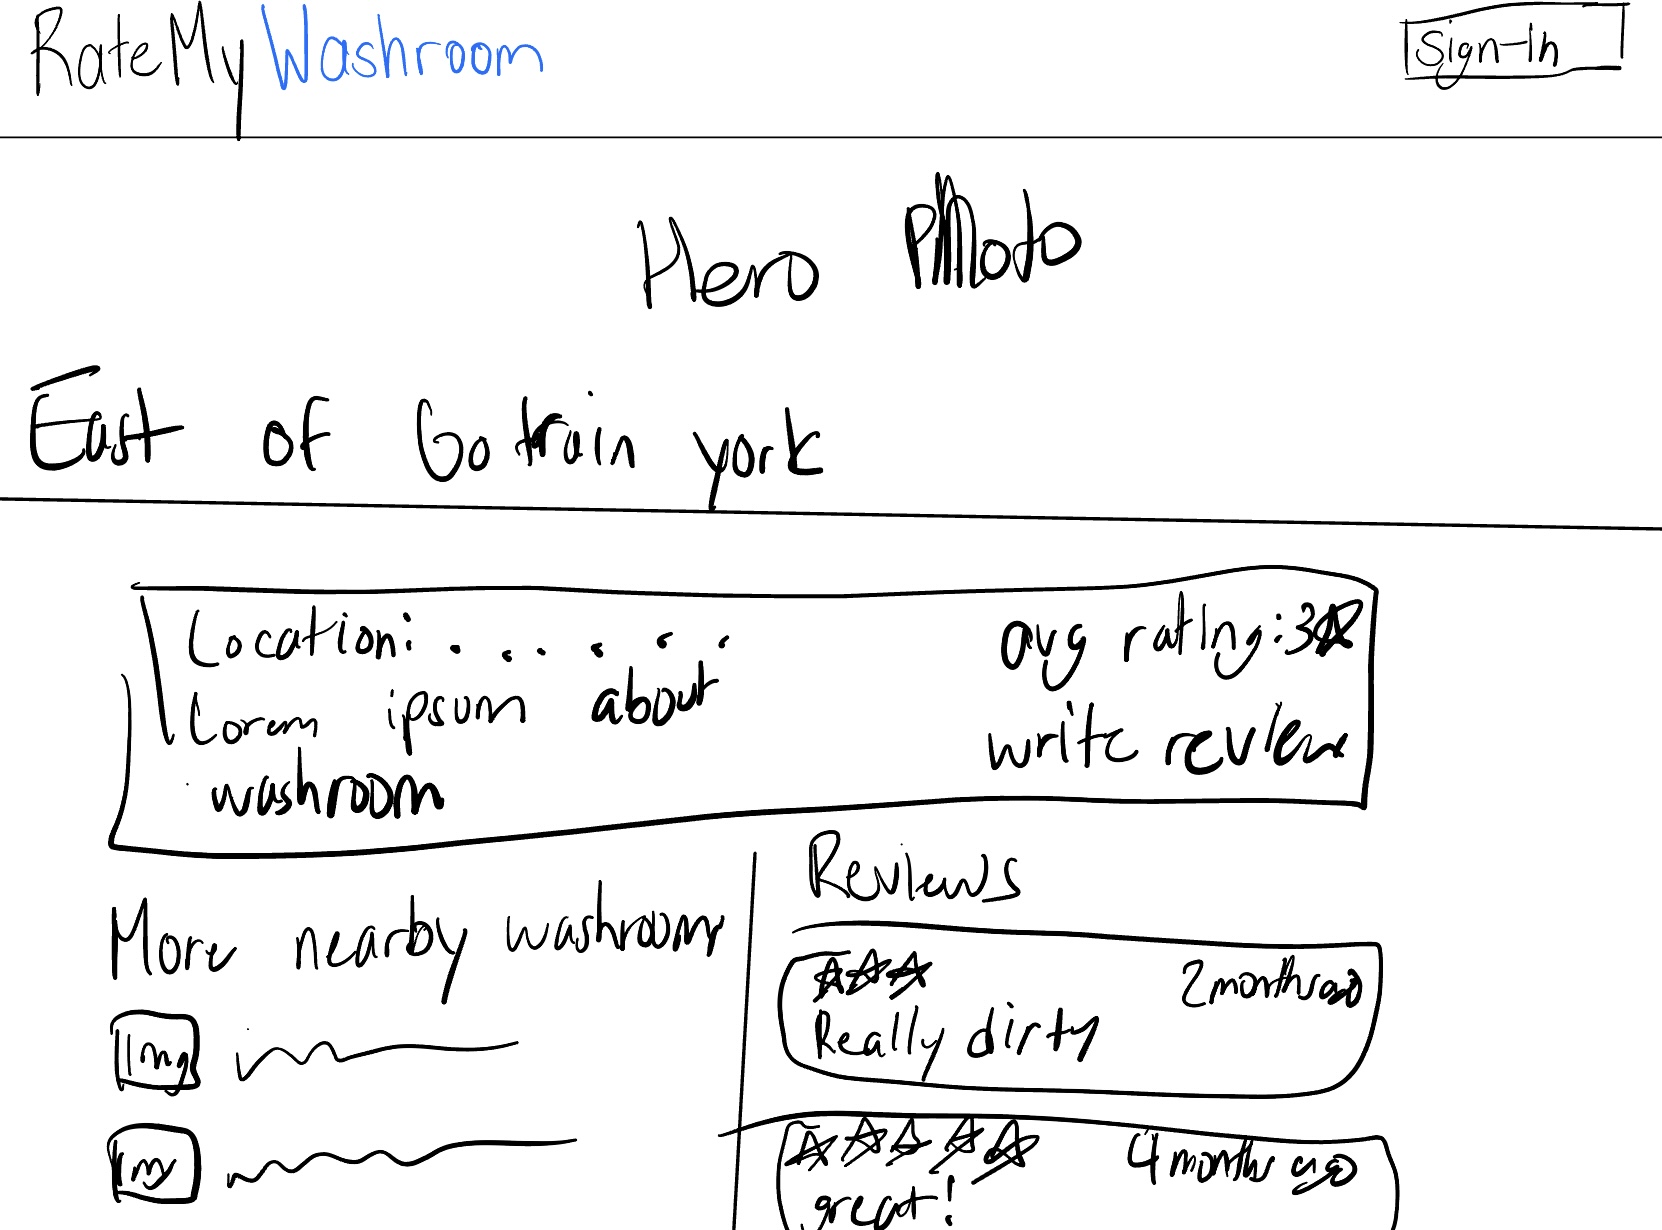 RateMyWashroom
Sign-In
Hero Photo
East of Go train york
Location: . . . . . .
Lorem ipsum about
washroom
avg rating: 3☆
write review
More nearby washrooms
Img
Img
Reviews
☆☆☆ 2 months ago
Really dirty
☆☆☆☆☆ 4 months ago
great!